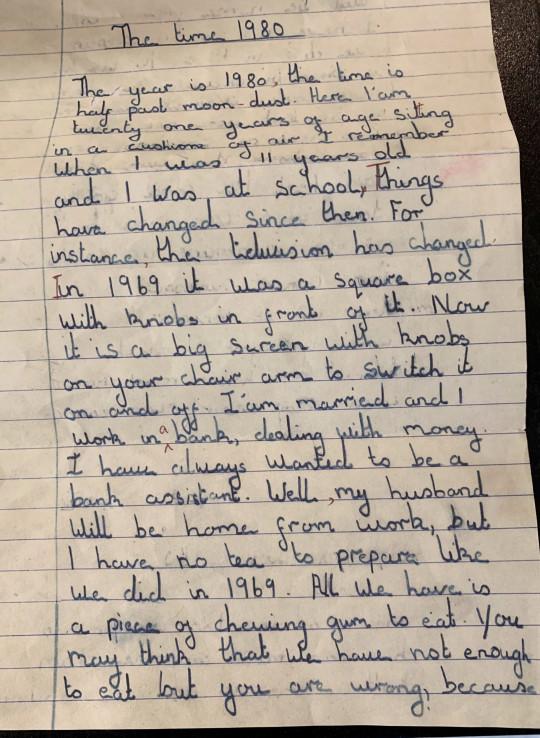 The time 1980
The year is 1980, the time is
half past moon-dust. Here I'am
twenty one years of age sitting
in a cushione of air I remember
When I was 11 years old
and I was at school, Things
have changed since then. For
instance, the television has changed.
In 1969 it was a square box
with knobs in front of it. Now
it is a big screen with knobs
on your chair arm to switch it
on and off. I'am married and I
work in a bank, dealing with money.
I have always wanted to be a
bank assistant. Well, my husband
will be home from work, but
I have no tea to prepare like
we did in 1969. All we have is
a piece of chewing gum to eat. You
may think that we have not enough
to eat but you are wrong, because